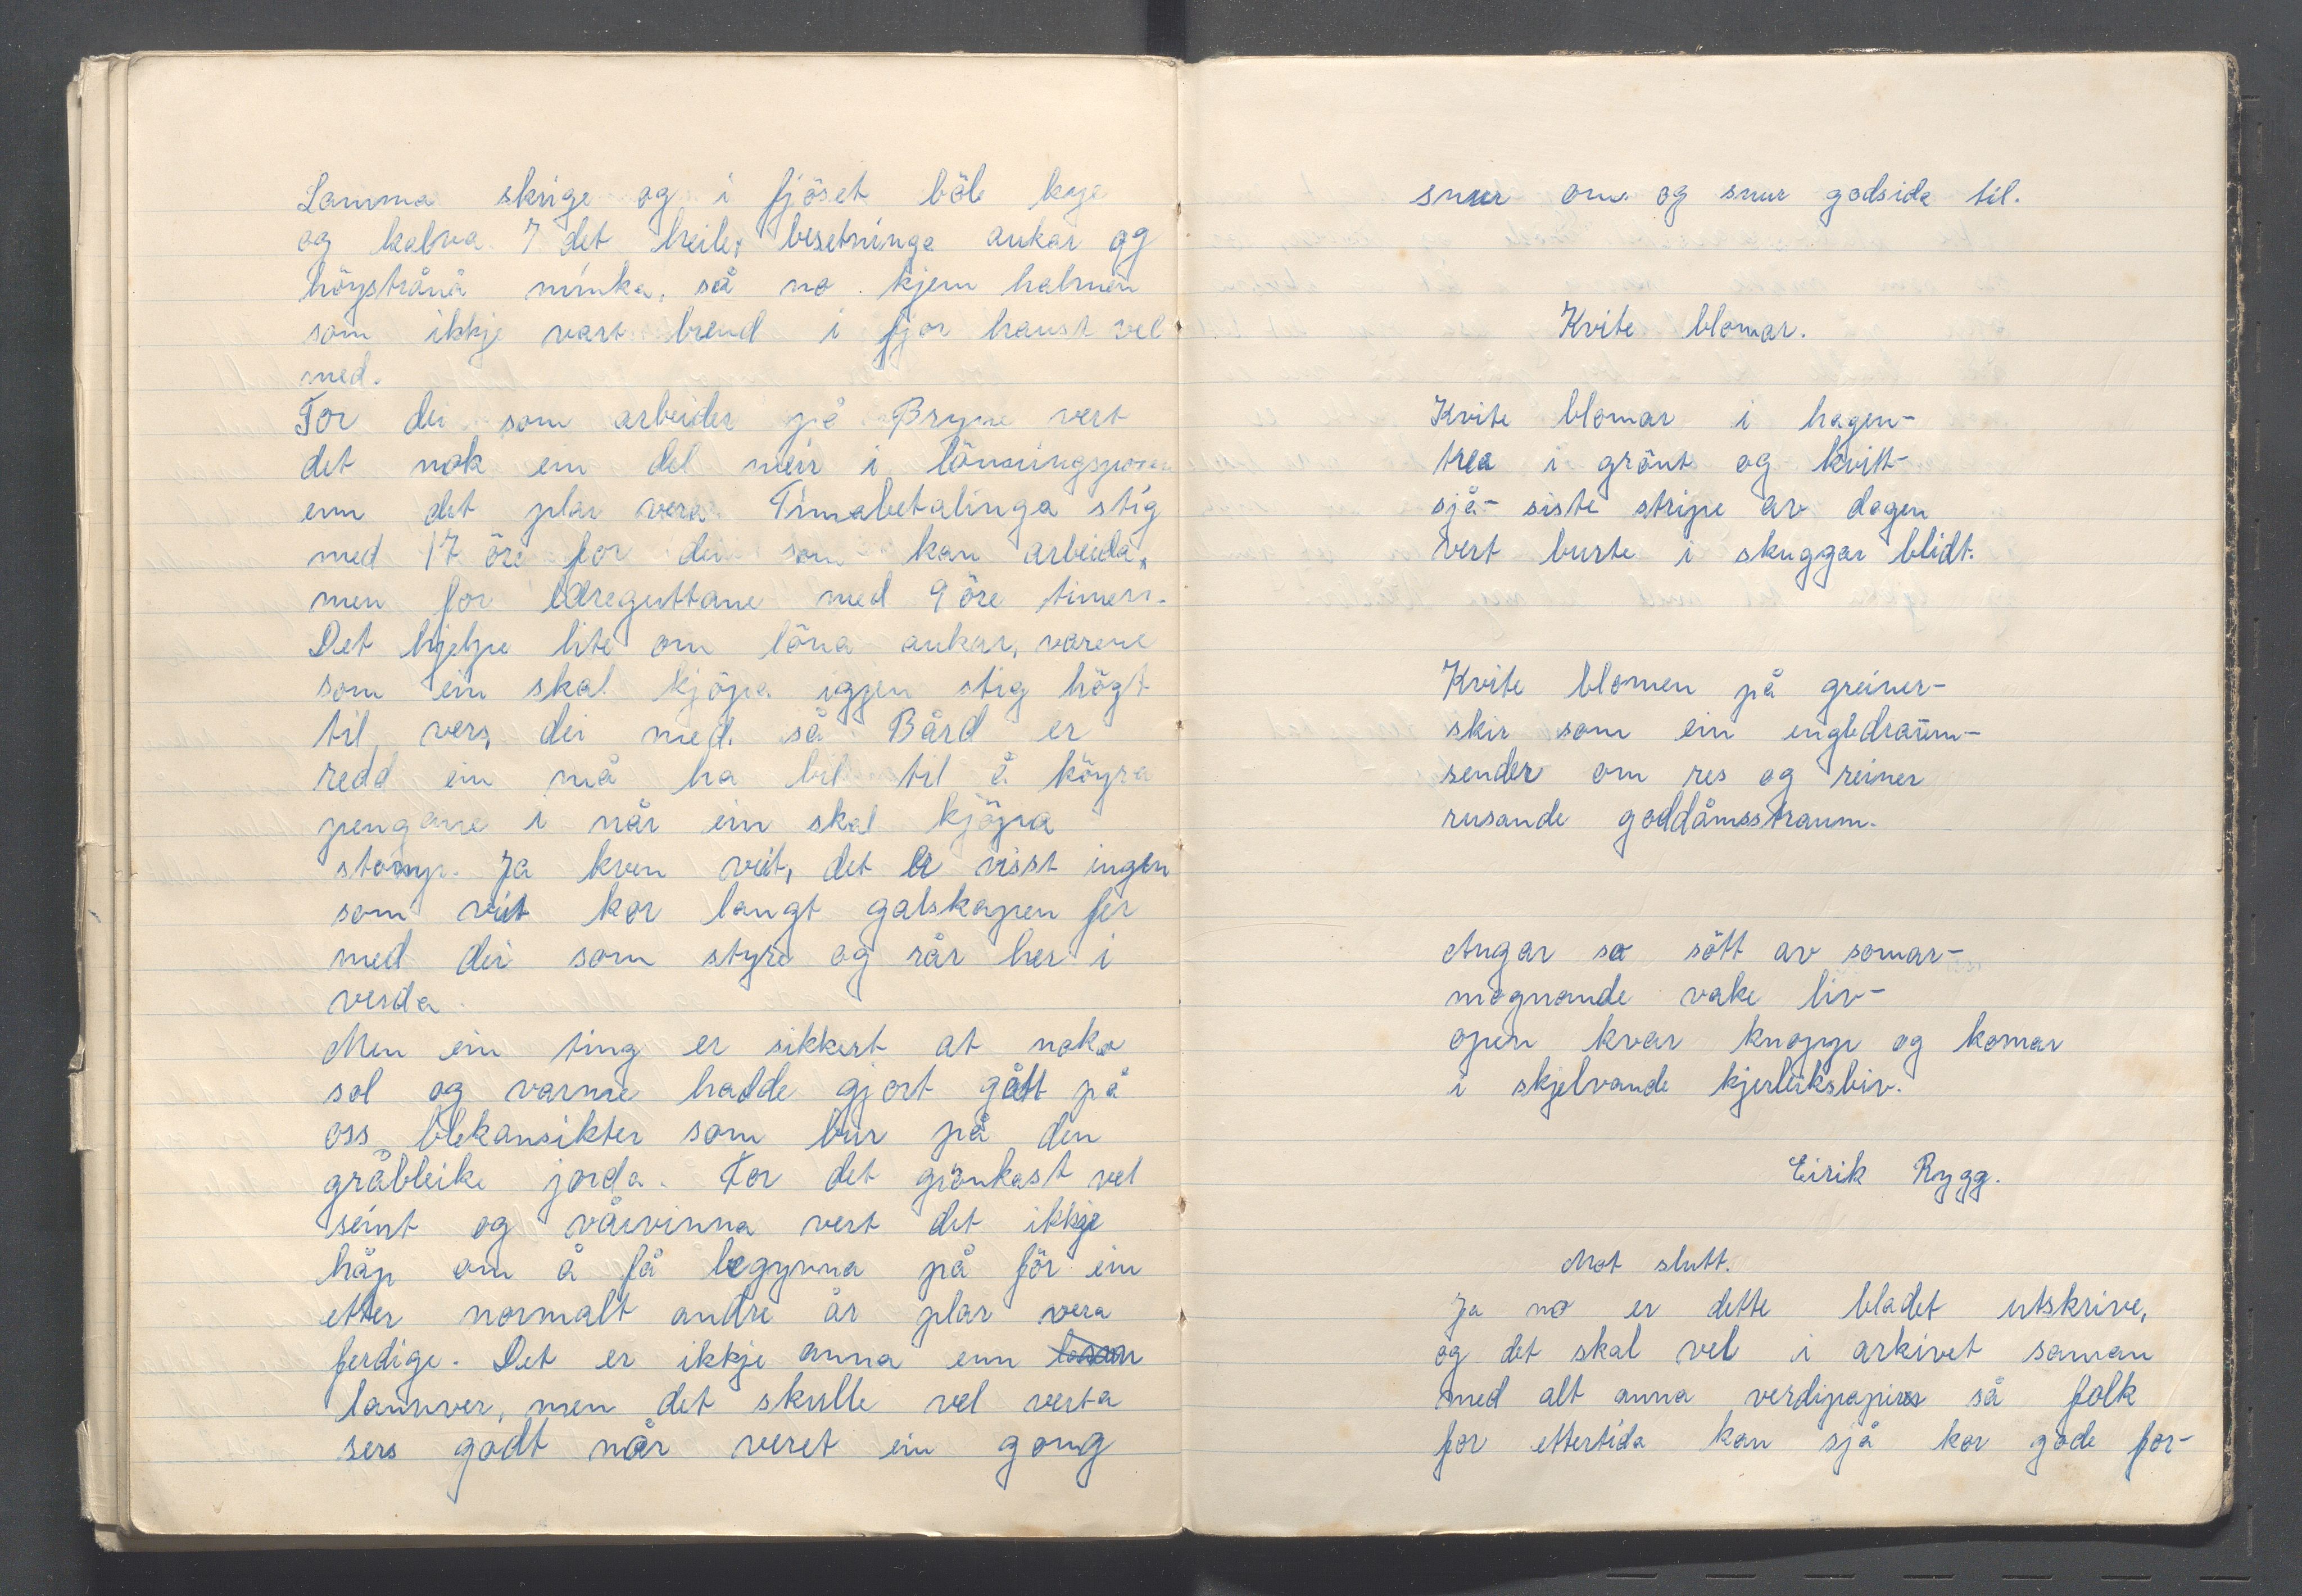 Lamma skrige og i fjöset böle kyr
og kalva. I det heile, besetninga aukar og
höystråнå minka, så no kjem halmen
som ikkje vart brend i fjor haust vel
med.
For dei som arbeider på Bryne vert
det nok ein del meir i lönningsposen
enn det plar vera. Timabetalinga stig
med 17 öre for dei som kan arbeida,
men for læreguttane med 9 öre timen.
Det hjelpe lite om löna aukar, varene
som ein skal kjöpa igjen stig högt
til vers, dei med, så Bård er
redd ein må ha bil til å köyra
pengane i når ein skal kjöpa
stomp. Ja kven veit, det er visst ingen
som veit kor langt galskapen fer
med dei som styre og rår her i
verda.
Men ein ting er sikkert at noko
sol og varme hadde gjort gått på
oss blekansikter som bur på den
gråbleike jorda. For det grönkast vel
seint og vårvinna vert det ikkje
håp om å få begynna på för ein
etter normalt andre år plar vera
ferdige. Det er ikkje anna enn
lannver, men det skulle vel verta
sers godt når veret ein gong
snur om og snur godsida til.
Kvite blomar.
Kvite blomar i hagen-
trea i grönt og kvitt-
sjå- siste stripe av dagen
vert burte i skuggar blidt.
Kvite blomen på greiner-
skir som ein engledraum-
sender om res og reiner
rusande goddåmsstraum.
Angar so sött av somar-
mognande vake liv-
open kvar knopp og komar
i skjelvande kjerleiksbiv.
Eirik Rygg.
Mot slutt.
Ja no er dette bladet utskrive,
og det skal vel i arkivet saman
med alt anna verdipapirer så folk
for ettertida kan sjå kor gode for-